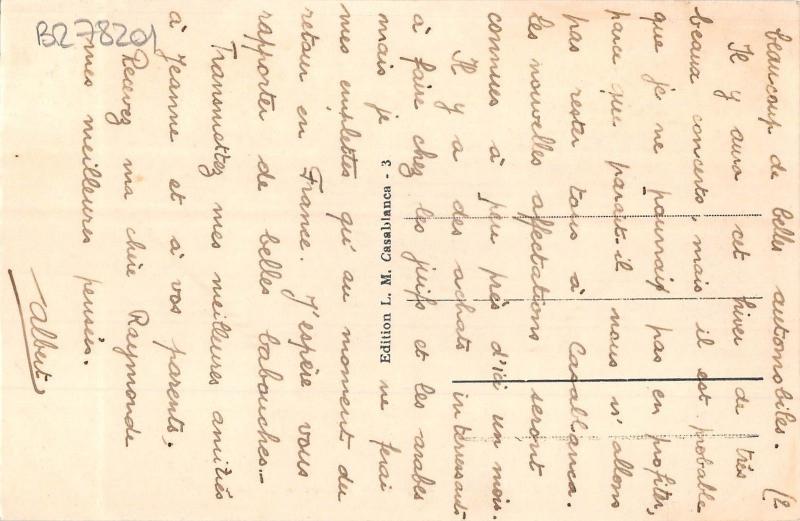 beaucoup de belles automobiles. (2
Il y aura cet hiver de très
beaux concerts, mais il est probable
que je ne pourrais pas en profiter,
parce que parait-il nous n'allons
pas rester tous à Casablanca.
Les nouvelles affectations seront
connues à peu près d'ici un mois.
Il y a des achats interessants
à faire chez les juifs et les arabes
mais je ne ferai
mes emplettes qu'au moment du
retour en France. J'espère vous
rapporter de belles babouches..
Transmettez mes meilleures amitiés
à Jeanne et à vos parents.
Recevez ma chère Raymonde
mes meilleures pensées.
Albert
Edition L. M. Casablanca - 3
B278201